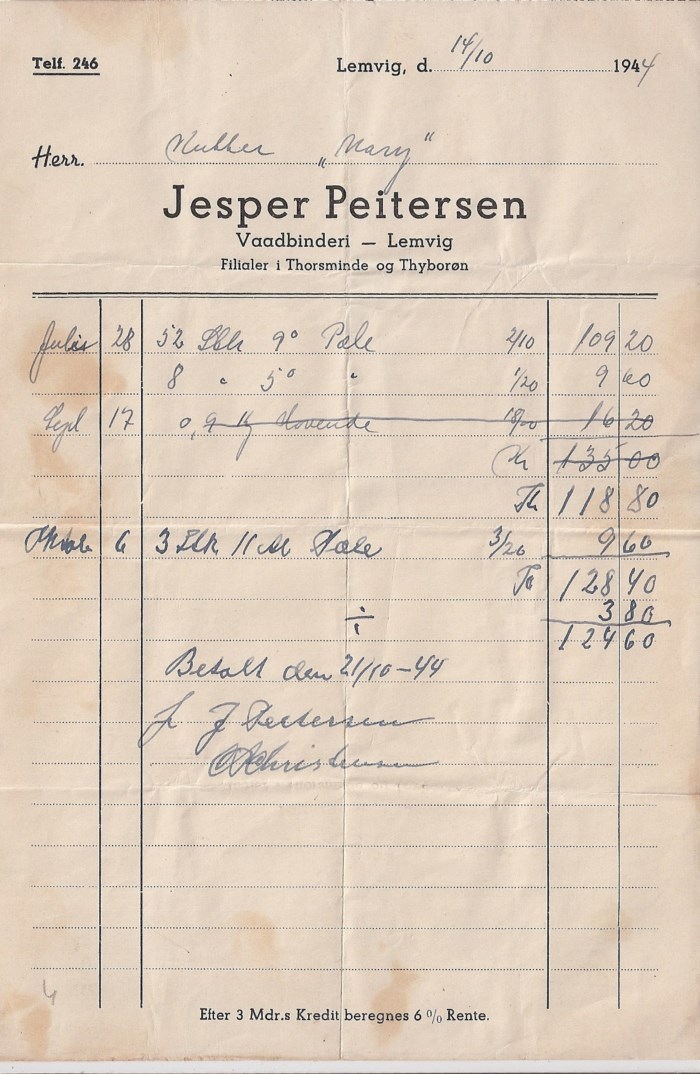 Telf. 246
Lemvig, d. 14/10 1944
Herr. Kutter "Mary"
Jesper Peitersen
Vaadbinderi — Lemvig
Filialer i Thorsminde og Thyborøn
28 52 Stk 9° Pæle 2/10 109 20
8 " 5° " 1/20 9 60
Sept 17 0,9 Kg 18/00 16 20
Kr 135 00
118 80
6 3 Stk 11 Pæle 3/20 9 60
128 40
÷ 3 80
124 60
Betalt den 21/10-44
J Peitersen
Christensen
Efter 3 Mdr.s Kredit beregnes 6 % Rente.
4